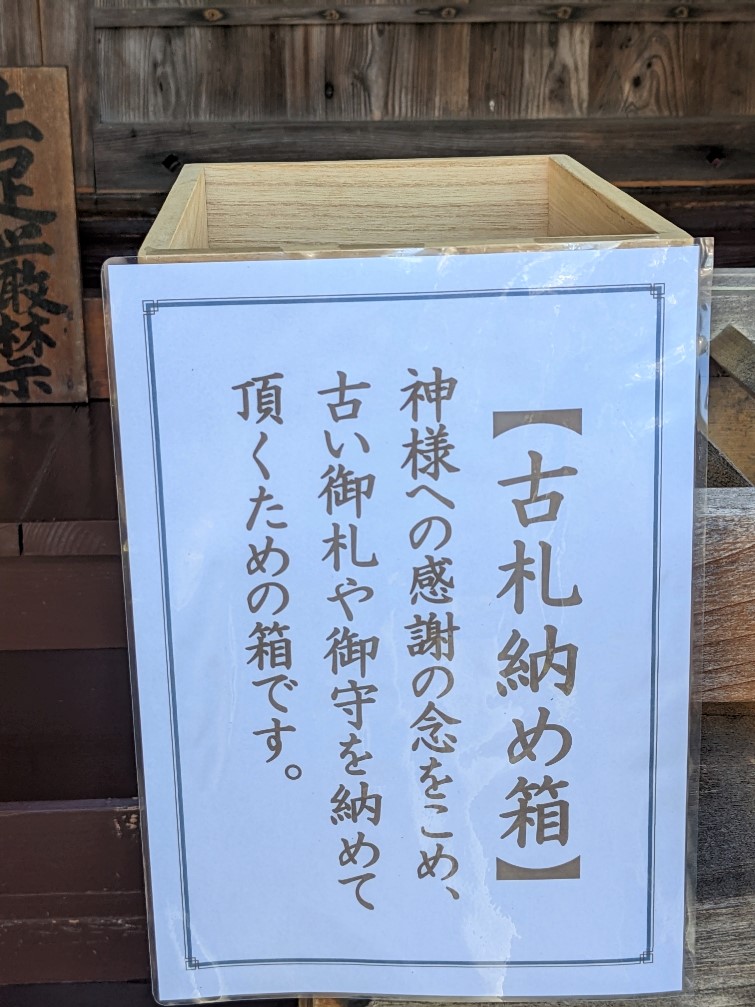 【古札納め箱】
神様への感謝の念をこめ、
古い御札や御守を納めて
頂くための箱です。
土足厳禁